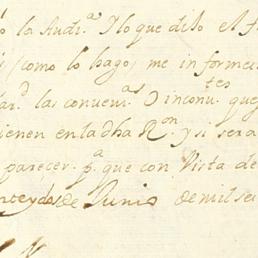 la Audi.ª Y lo que dijo el f
(como lo hago) me informe
las conuen.as O inconu.tes que
ienen en la dha R.on y si sera
parecer. p.ª que con Vista de
nteydos de Junio de mil sei